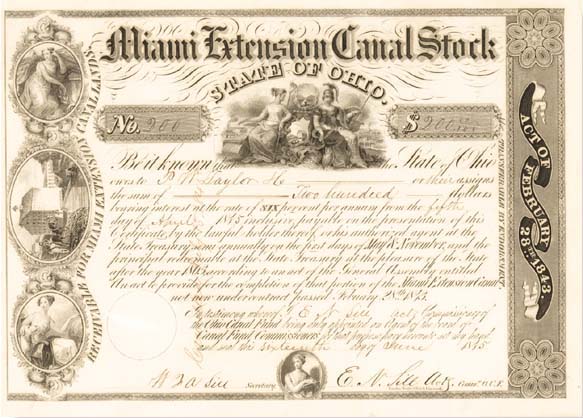 Miami Extension Canal Stock
STATE OF OHIO.
No. 200
$ 200 00/100
Be it known that the State of Ohio
owes to P. W. Taylor & Co or their assigns
the sum of Two hundred dollars
bearing interest at the rate of six per cent per annum from the fifth
day of April 1845 inclusive, payable on the presentation of this
Certificate, by the lawful holder thereof, or his authorized agent at the
State Treasury, semi annually on the first days of May & November, and the
principal redeemable at the State Treasury at the pleasure of the State
after the year according to an act of the General Assembly entitled
An act to provide for the completion of that portion of the Miami Extension Canal
not now under contract passed February 28th 1843.
In testimony whereof I E. N. Sill acty Commissioner of
the Ohio Canal Fund being duly appointed an Agent of the board of
Canal Fund Commissioners for that purpose have hereunto set my hand
and seal this sixteenth day of June 1845
Secretary
E. N. Sill Actg. Commr. O.C.F.
TRANSFERABLE BY ENDORSEMENT.
ACT OF FEBRUARY 28TH 1843.
RECEIVABLE FOR MIAMI EXTENSION CANAL LANDS